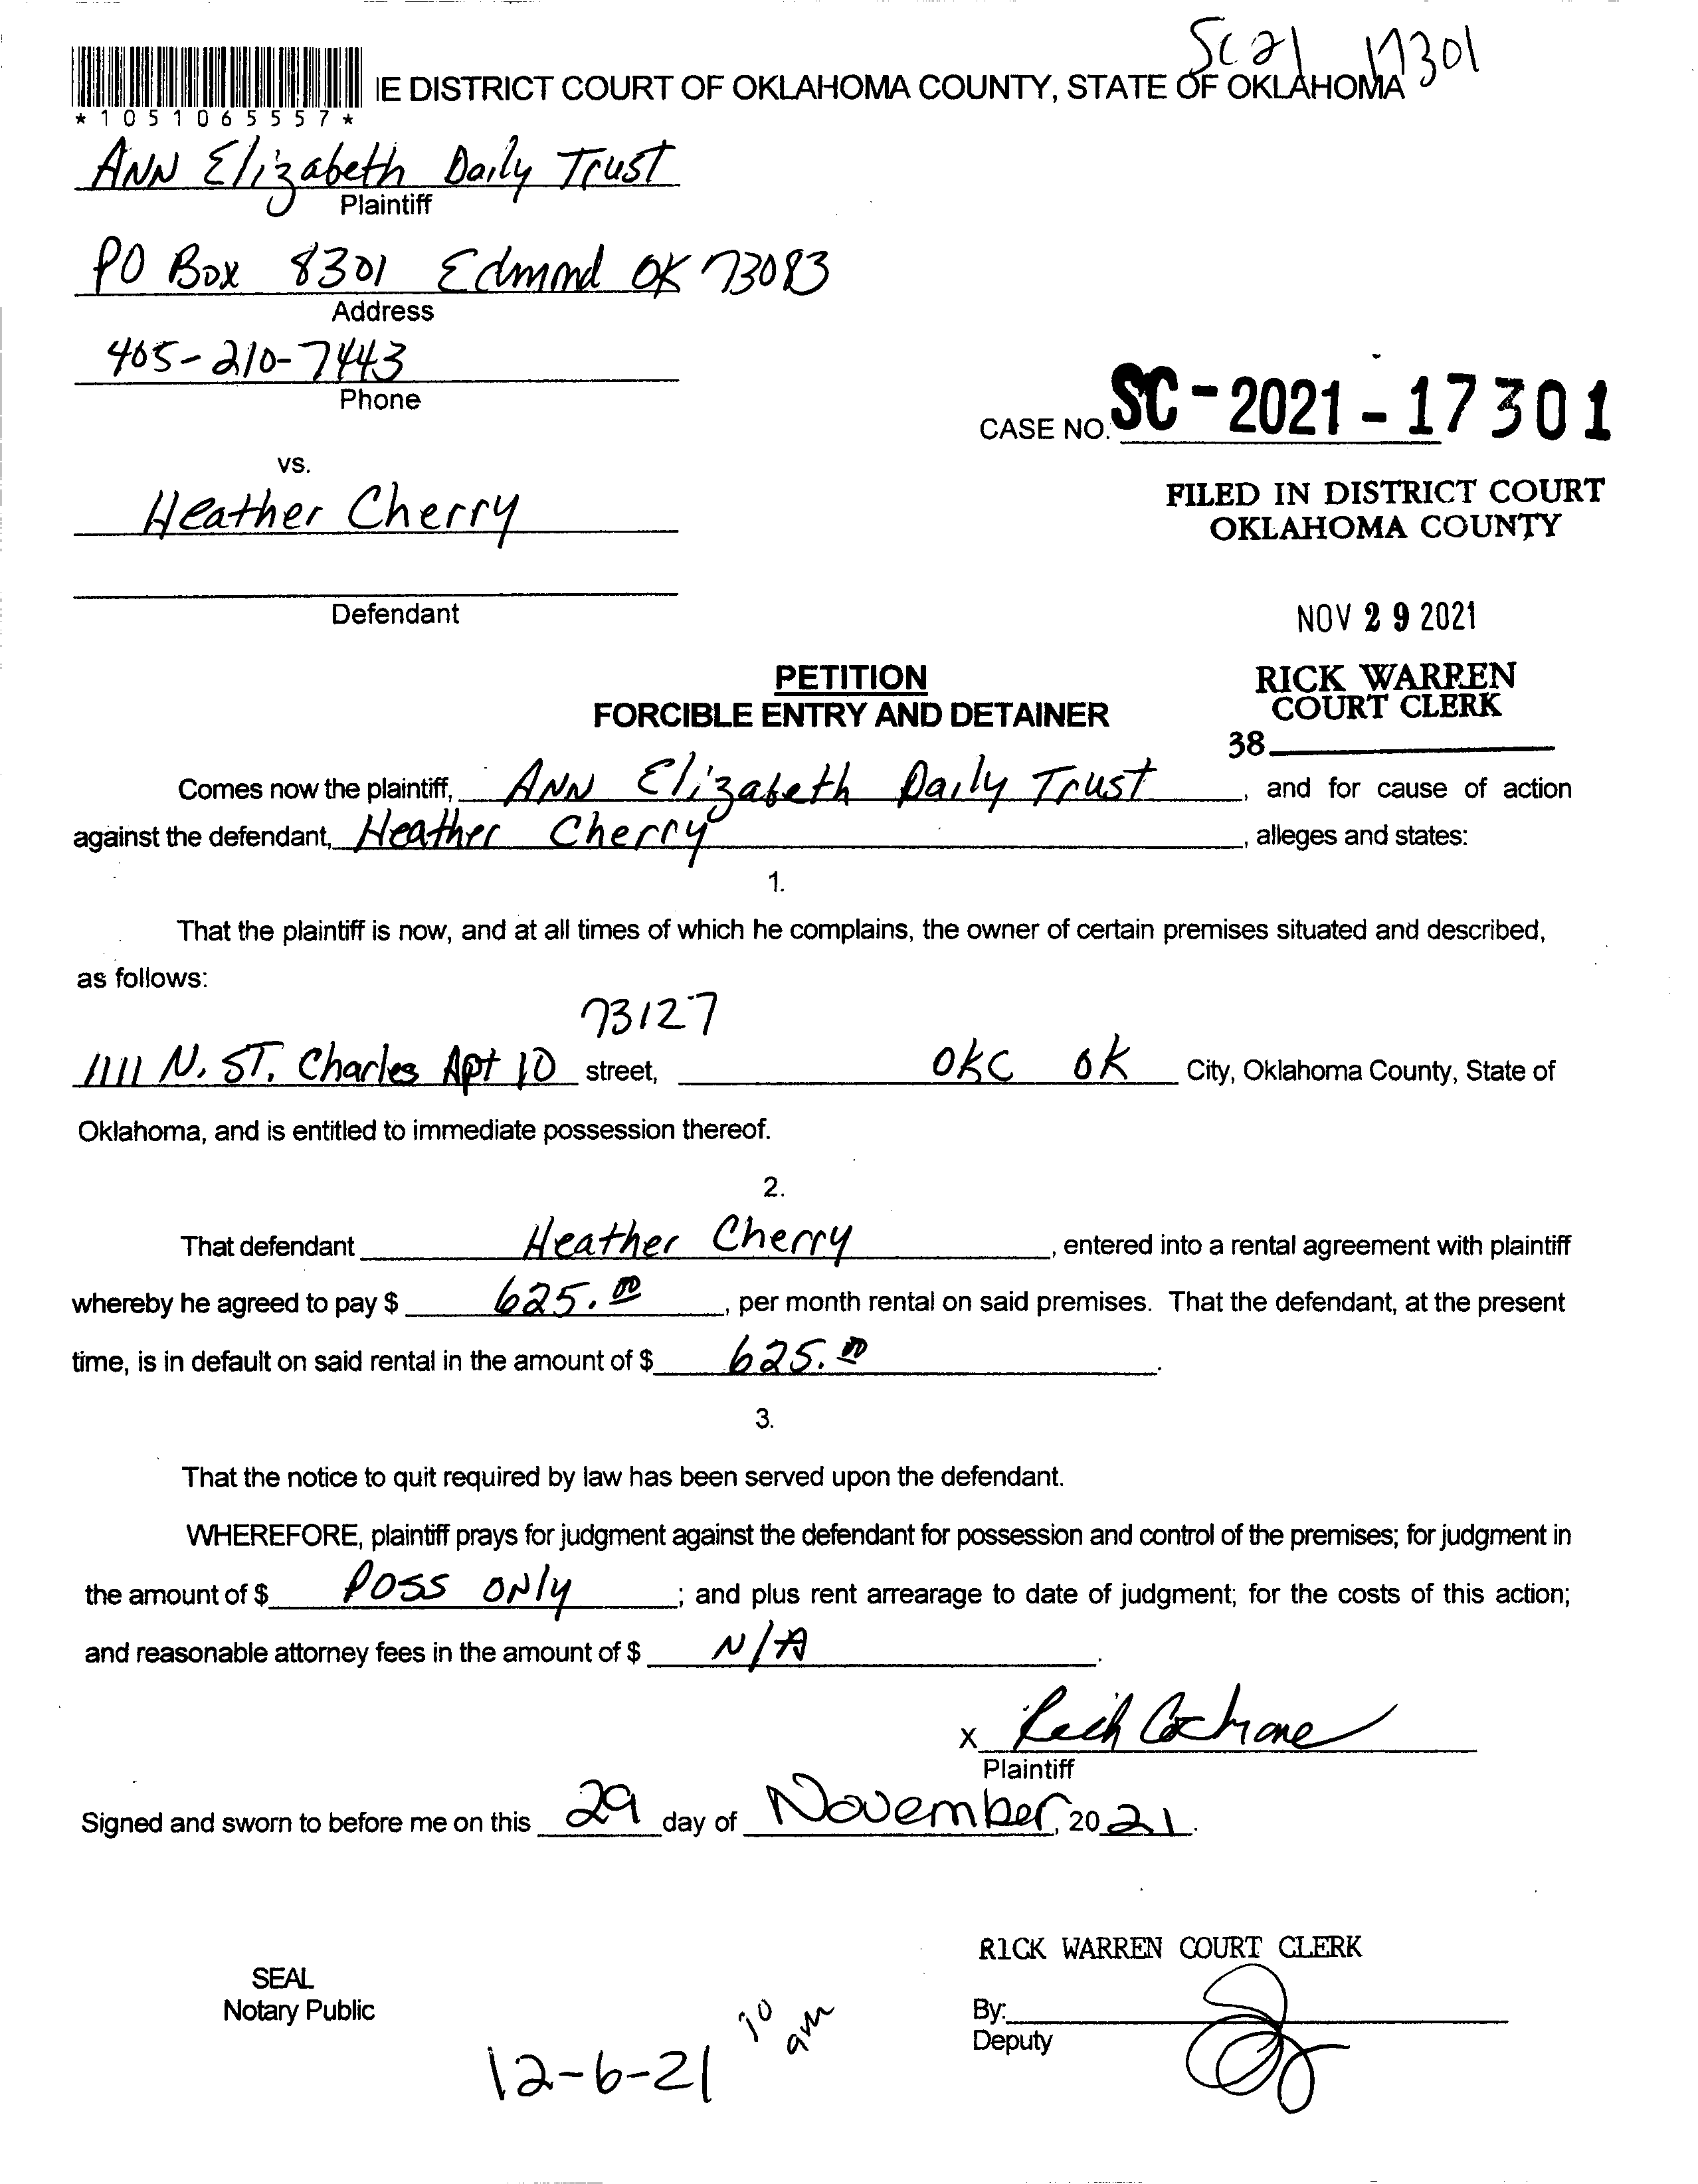 SC21 17301
IE DISTRICT COURT OF OKLAHOMA COUNTY, STATE OF OKLAHOMA
*1051065557*
ANN Elizabeth Daily Trust
Plaintiff
PO Box 8301 Edmond OK 73083
Address
405-210-7443
Phone
CASE NO. SC-2021-17301
vs.
FILED IN DISTRICT COURT
OKLAHOMA COUNTY
Heather Cherry
Defendant
NOV 29 2021
PETITION
FORCIBLE ENTRY AND DETAINER
RICK WARREN
COURT CLERK
38
Comes now the plaintiff, ANN Elizabeth Daily Trust, and for cause of action
against the defendant, Heather Cherry, alleges and states:
1.
That the plaintiff is now, and at all times of which he complains, the owner of certain premises situated and described,
as follows:
73127
1111 N. ST. Charles Apt 10 street, OKC OK City, Oklahoma County, State of
Oklahoma, and is entitled to immediate possession thereof.
2.
That defendant Heather Cherry, entered into a rental agreement with plaintiff
whereby he agreed to pay $ 625.00, per month rental on said premises. That the defendant, at the present
time, is in default on said rental in the amount of $ 625.00.
3.
That the notice to quit required by law has been served upon the defendant.
WHEREFORE, plaintiff prays for judgment against the defendant for possession and control of the premises; for judgment in
the amount of $ Poss ONly; and plus rent arrearage to date of judgment; for the costs of this action;
and reasonable attorney fees in the amount of $ N/A.
X Rich Cochrane
Plaintiff
Signed and sworn to before me on this 29 day of November, 2021.
RICK WARREN COURT CLERK
SEAL
Notary Public
By:
Deputy
12-6-21 10 am